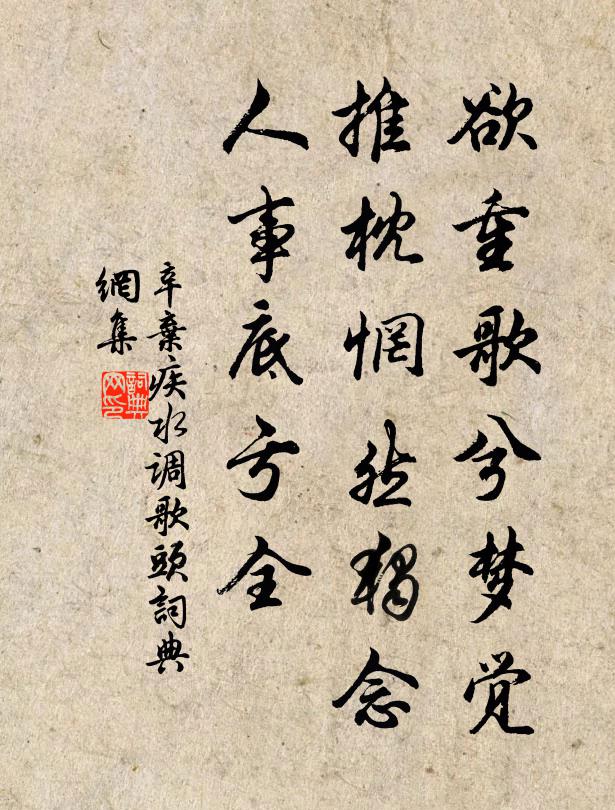 欲重歌兮梦觉
推枕惘然独念
人事底亏全
辛棄疾水调歌頭詞典
網集
詞典
网印